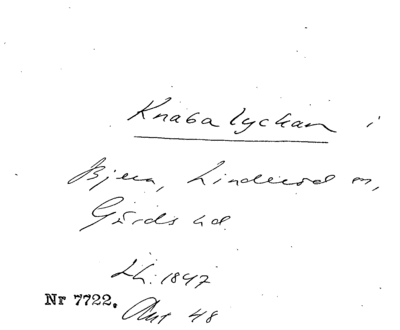 Knabalyckan i
Linderöd sn,
Gärds hd.
Lh. 1847
Nr 7722. Akt 48